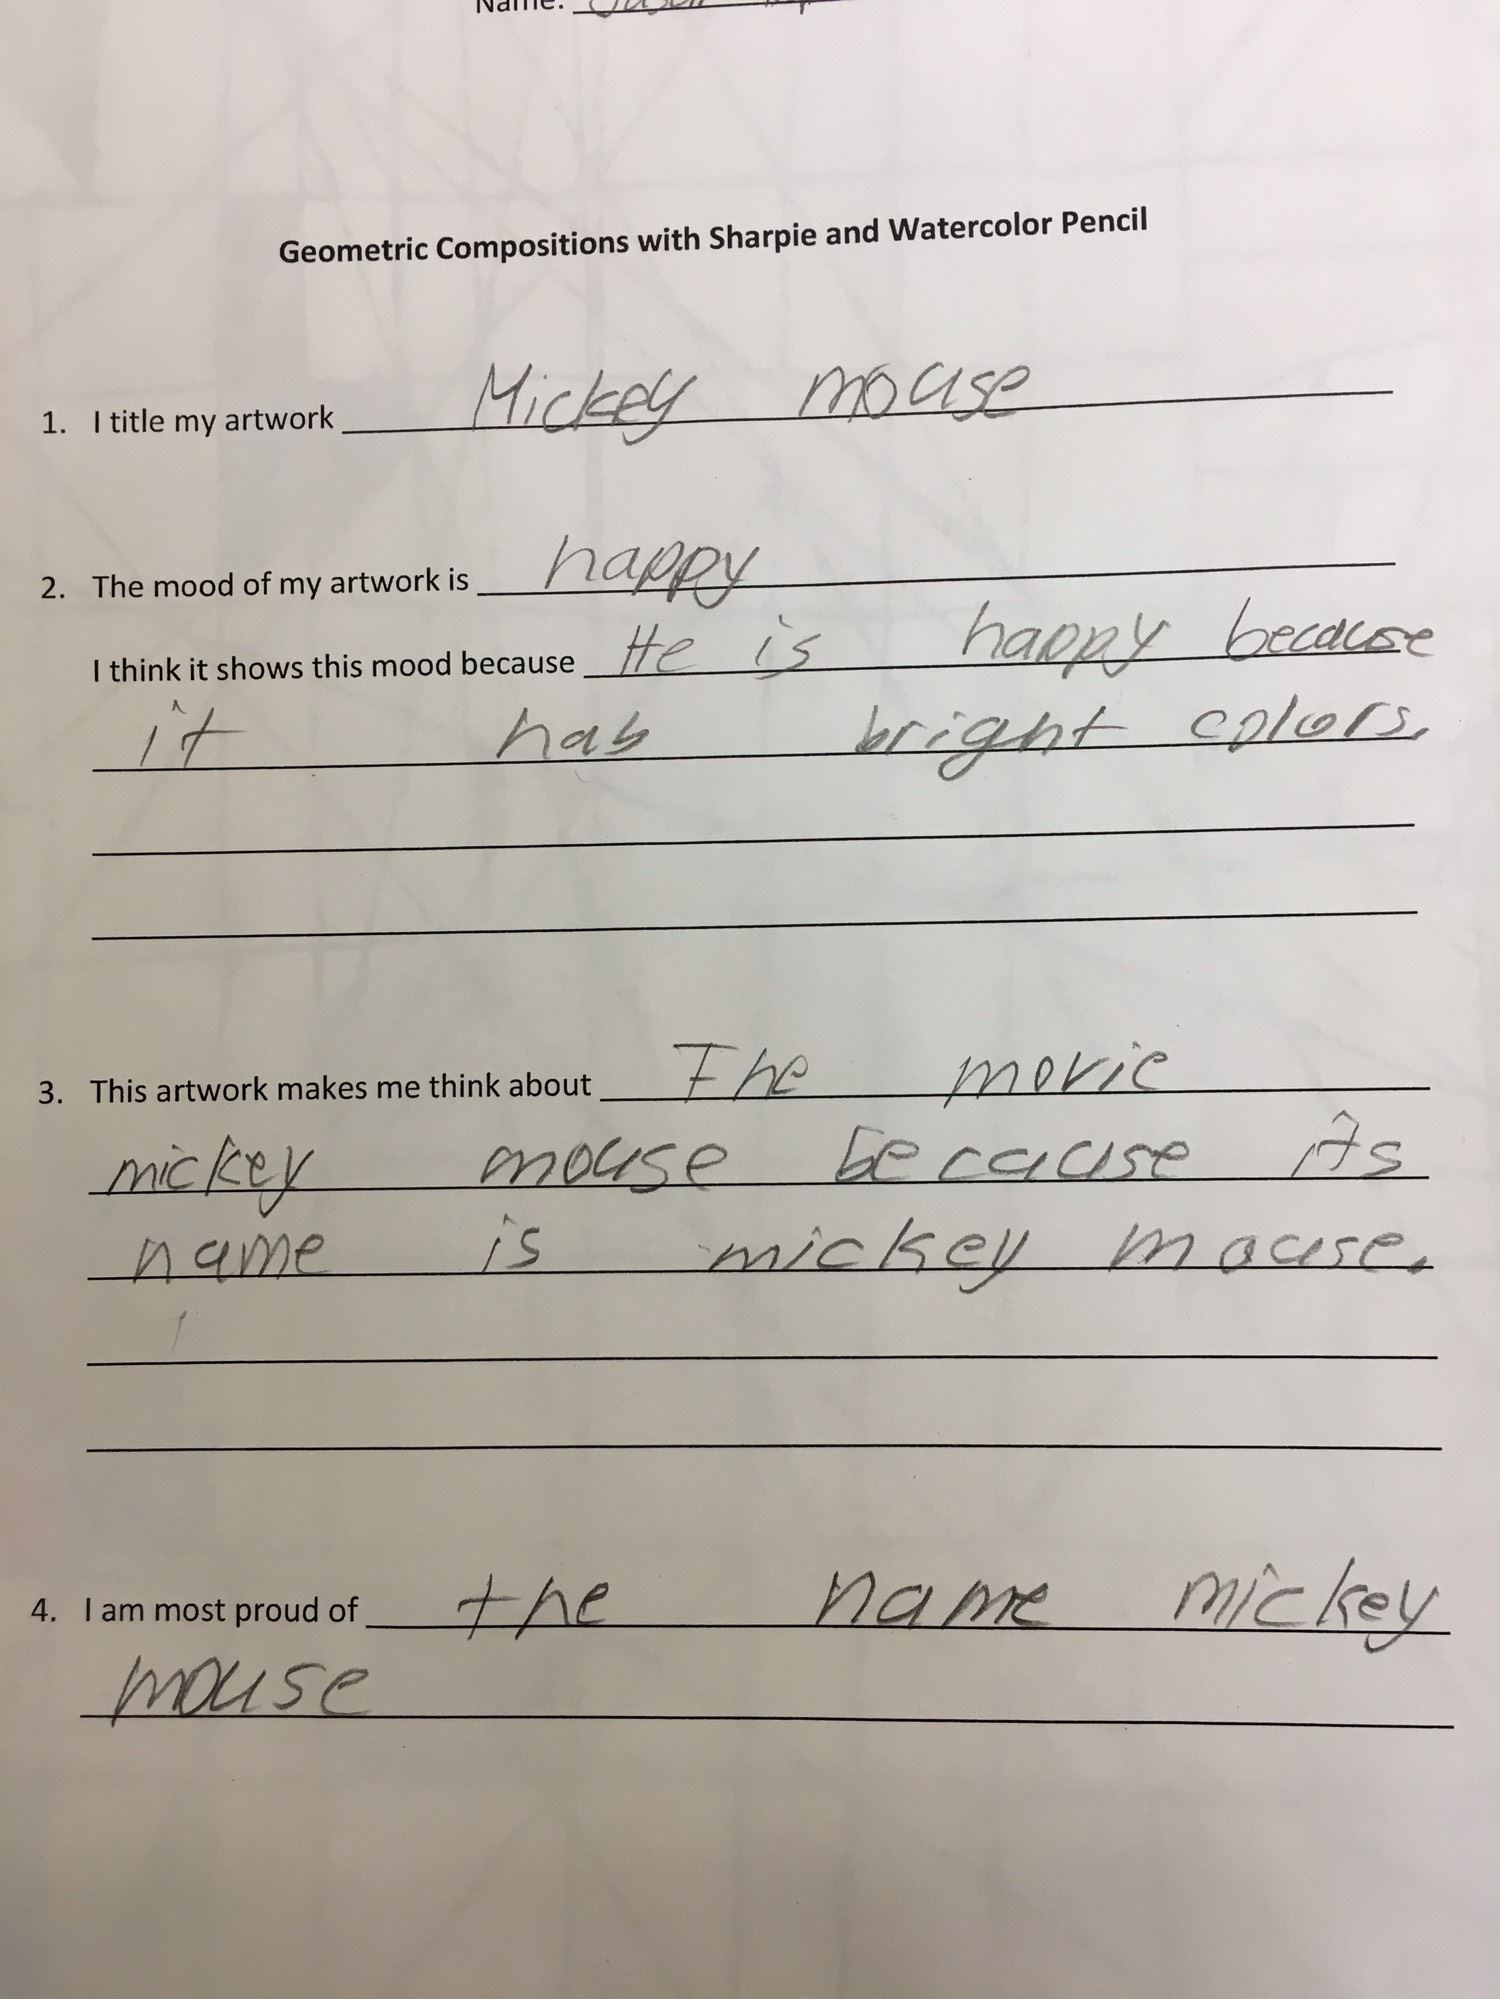 Name:
Geometric Compositions with Sharpie and Watercolor Pencil
1. I title my artwork Mickey mouse
2. The mood of my artwork is happy
I think it shows this mood because He is happy because
it has bright colors.
3. This artwork makes me think about The movie
mickey mouse because its
name is mickey mouse.
4. I am most proud of the name mickey
mouse